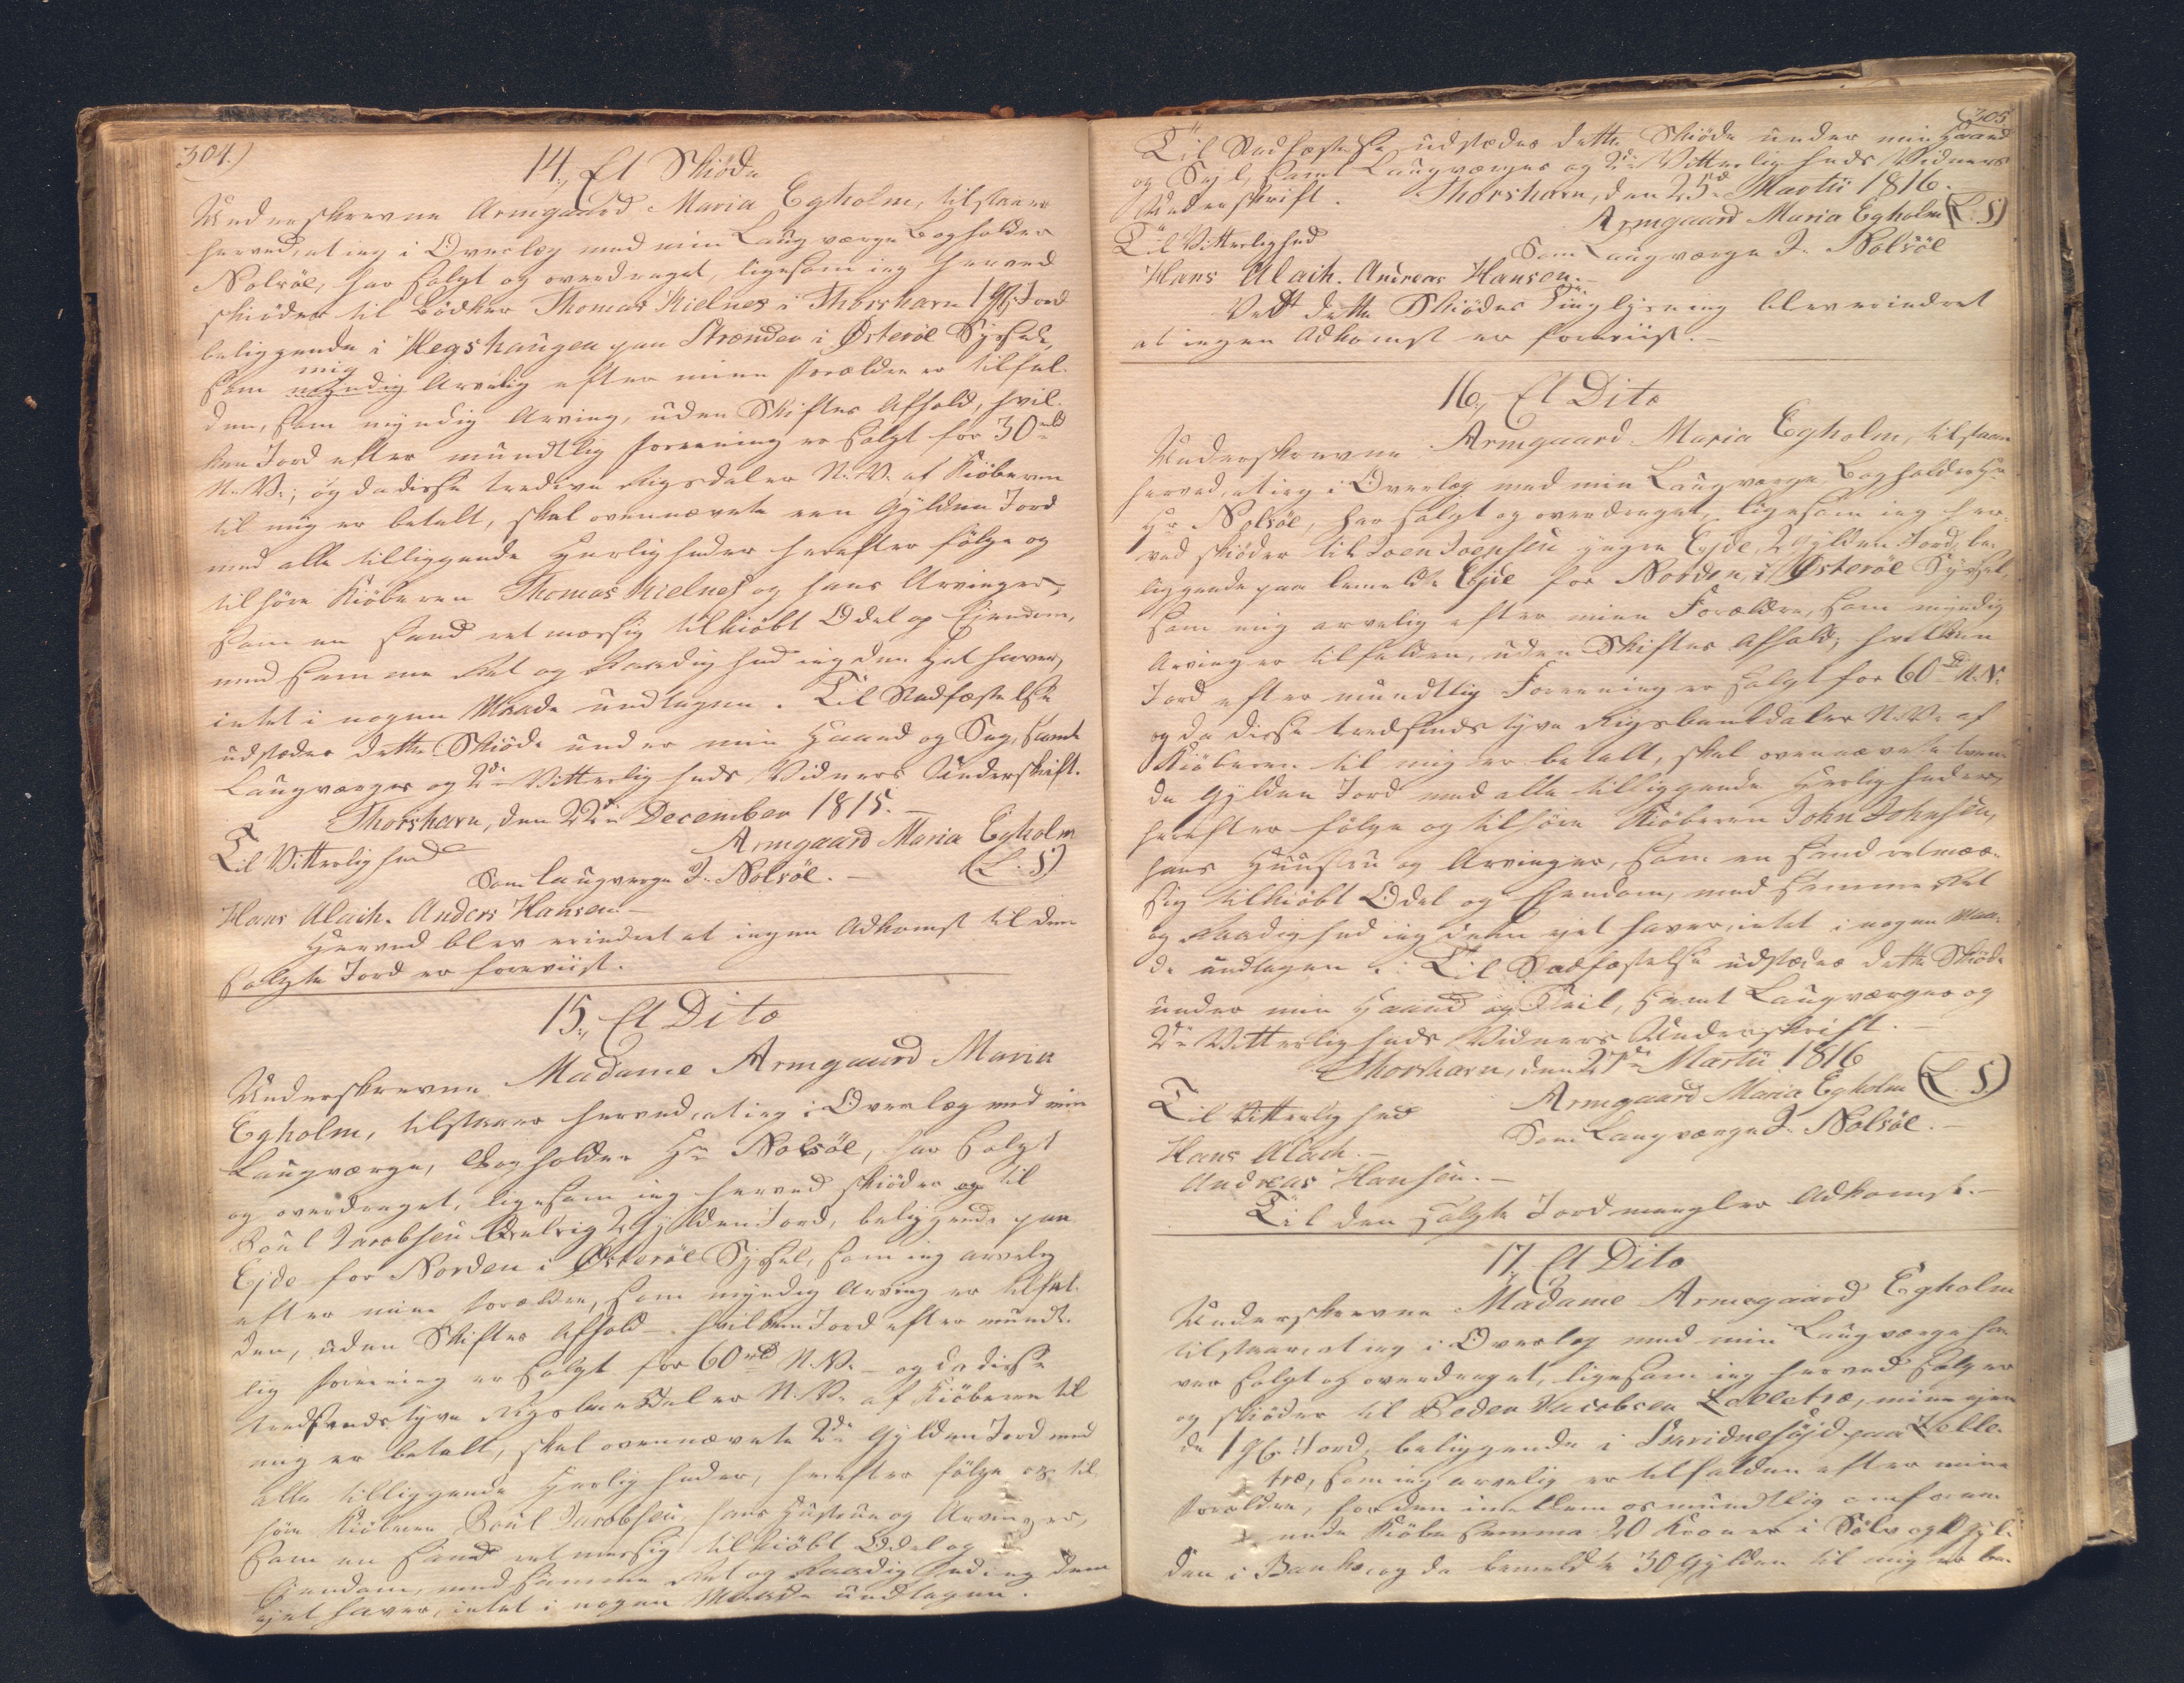 304.)
14., Et Skiöde
Underskrevne Armgaard Maria Egholm, tilstaaer
herved, at ieg i Overlæg med min Laugværge Bogholder
Nolsöe, har solgt og overdraget, ligesom ieg herved
skiöder til Bödker Thomas Kielnes i Thorshavn 1 Gl. Jord
beliggende i Hegshaugen paa Strænder i Østeröe Syssel,
mig
som myndig Arvelig efter mine Forældre er tilfal-
den, som myndig Arving, uden Skiftes Afhold, hvil-
ken Jord efter mundtlig Foreening er solgt for 30 rbd
N. V.; og da disse tredive Rigsdaler N. V. af Kiöberen
til mig er betalt, skal ovennævnte een Gylden Jord
med alle tilliggende Herligheder herefter fölge og
tilhöre Kiöberen Thomas Kielnes og hans Arvinger,
som en sand retmæssig tilkiöbt Odel og Eiendom,
med samme Ret og Raadighed ieg den Ejet haver,
intet i nogen Maade undtagen. Til Stadfæstelse
udstædes dette Skiöde under min Haand og Seg, samt
Laugværges og 2de Vitterligheds Vidners Underskrift.
Thorshavn, den 22de December 1815.
Til Vitterlighed Armgaard Maria Egholm
Som Laugværge J. Nolsöe. (L. S)
Hans Alaih. Anders Hansen.
Herved blev erindret at ingen Adkomst til den
solgte Jord er foreviist.
15., Et Dito
Underskrevne Madame Armgaard Maria
Egholm, tilstaaer herved, at ieg i Overlæg med min
Laugværge, Bogholder Hr Nolsöe, har solgt
og overdraget, ligesom ieg herved skiöder og til
Poul Jacobsen 2 Gylden Jord, beliggende paa
Ejde for Norden i Østeröe Syssel, som ieg arvelig
efter mine Forældre, som myndig Arving er tilfal-
den, uden Skiftes Afhold - hvilken Jord efter mundt-
lig Foreening er solgt for 60 rbd N. V. - og da disse
tredsindstyve Rigsbankdaler N. V. af Kiöberen til
mig er betalt, skal ovennævnte 2de Gylden Jord med
alle tilliggende Herligheder, herefter fölge og til-
höre Kiöberen Poul Jacobsen, hans Hustrue og Arvinger,
som en sand retmæssig tilkiöbt Odel og
Eiendom, med samme Ret og Raadighed ieg dem
ejet haver, intet i nogen Maade undtagen.
305
Til Stadfæstelse udstædes dette Skiöde under min Haand
og Segl, samt Laugværges og 2de Vitterligheds Vidners
Underskrift. Thorshavn, den 25de Martii 1816.
Armgaard Maria Egholm (L. S)
Til Vitterlighed Som Laugværge J. Nolsöe
Hans Alaih. Andreas Hansen.
Ved dette Skiödes Tinglysning blev erindret
at ingen Adkomst er foreviist.
16., Et Dito
Underskrevne Armgaard Maria Egholm, tilstaaer
herved, at ieg i Overlæg med min Laugværge, Bogholder
Hr Nolsöe, har solgt og overdraget, ligesom ieg her-
ved skiöder til Joen Joensen yngre Ejde, 2 Gylden Jord, be-
liggende paa bemeldte Ejde for Norden, i Østeröe Syssel,
som mig arvelig efter mine Forældre, som myndig
Arving er tilfalden, uden Skiftes Afhold; hvilken
Jord efter mundtlig Foreening er solgt for 60 rbd N. V.
og da disse tredsindstyve Rigsbankdaler N. V. af
Kiöberen til mig er betalt, skal ovennævnte tven-
de Gylden Jord med alle tilliggende Herligheder,
herefter fölge og tilhöre Kiöberen John Johnsen,
hans Huustru og Arvinger, som en sand retmæs-
sig tilkiöbt Odel og Eiendom, med samme Ret
og Raadighed ieg dem ejet haver, intet i nogen Maa-
de undtagen. Til Stadfæstelse udstædes dette Skiöde
under min Haand og Seil, samt Laugværges og
2de Vitterligheds Vidners Underskrift.
Thorshavn, den 27de Martii 1816
Til Vitterlighed Armgaard Maria Egholm (L. S)
Hans Alaih. Som Laugværge J. Nolsöe.
Andreas Hansen.
Til den solgte Jord mangler Adkomst.
17. Et Dito
Underskrevne Madame Armegaard Egholm
tilstaaer, at ieg i Overlæg med min Laugværge ha-
ver solgt og overdraget, ligesom ieg herved sælger
og skiöder til Peder Jacobsen Zelletræ, mine ejen-
de 1 Gl. Jord, beliggende i paa Zelle-
træ, som ieg arvelig er tilfalden efter mine
Forældre, for den imellem os mundtlig omfore-
nede Kiöbe Summa 20 Kroner i Sölv og Gyl-
den i Banko, og da bemeldte 30 Gylden til mig er be-